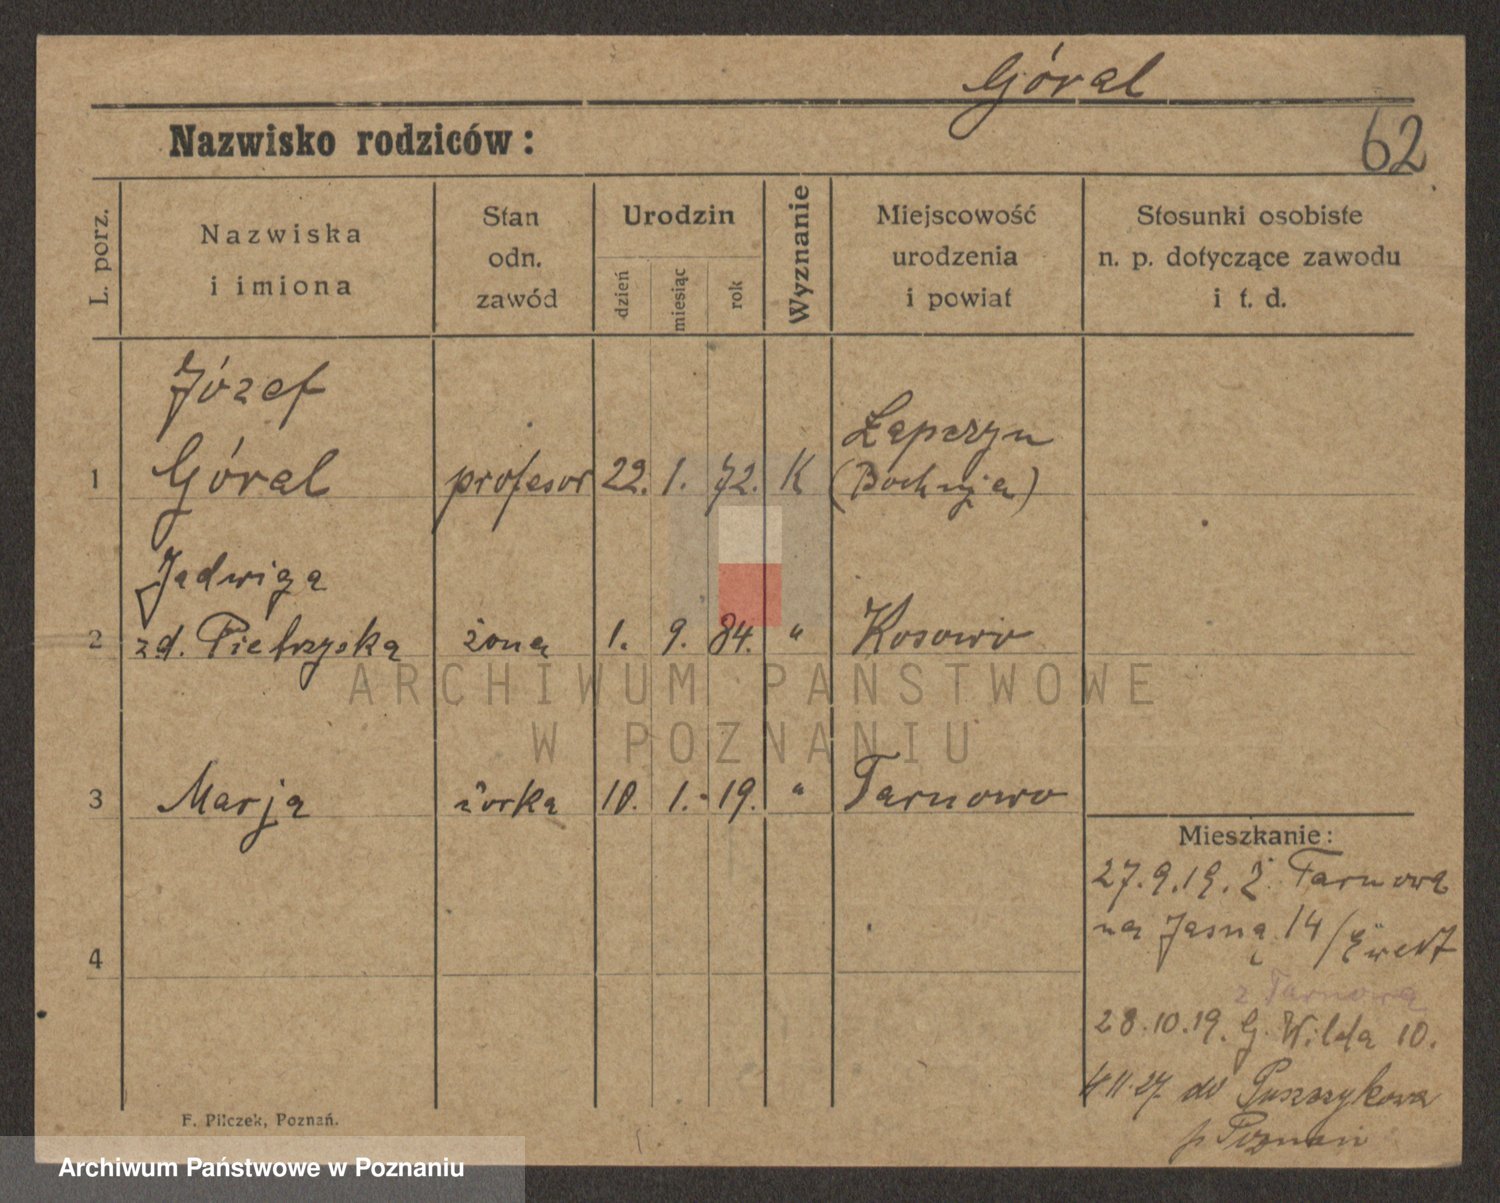 Góral
62
Nazwisko rodziców:
L. porz.
Nazwiska
i imiona
Stan
odn.
zawód
Urodzin
dzień
miesiąc
rok
Wyznanie
Miejscowość
urodzenia
i powiat
Stosunki osobiste
n. p. dotyczące zawodu
i t. d.
Józef
1 Góral profesor 22. 1. 72. K Łapczyn
(Bochnja)
Jadwiga
2 zd. Pietrzyska żona 1. 9. 84. " Kosowo
3 Marja córka 10. 1. 19. " Tarnowo
Mieszkanie:
27.9.19. Z. Tarnowa
na Jasną 14
4
z Tarnowa
28.10.19. G. Wilda 10.
4 11.27. do Puszczykowa
p Poznań
F. Pilczek, Poznań.
ARCHIWUM PAŃSTWOWE
W POZNANIU
Archiwum Państwowe w Poznaniu